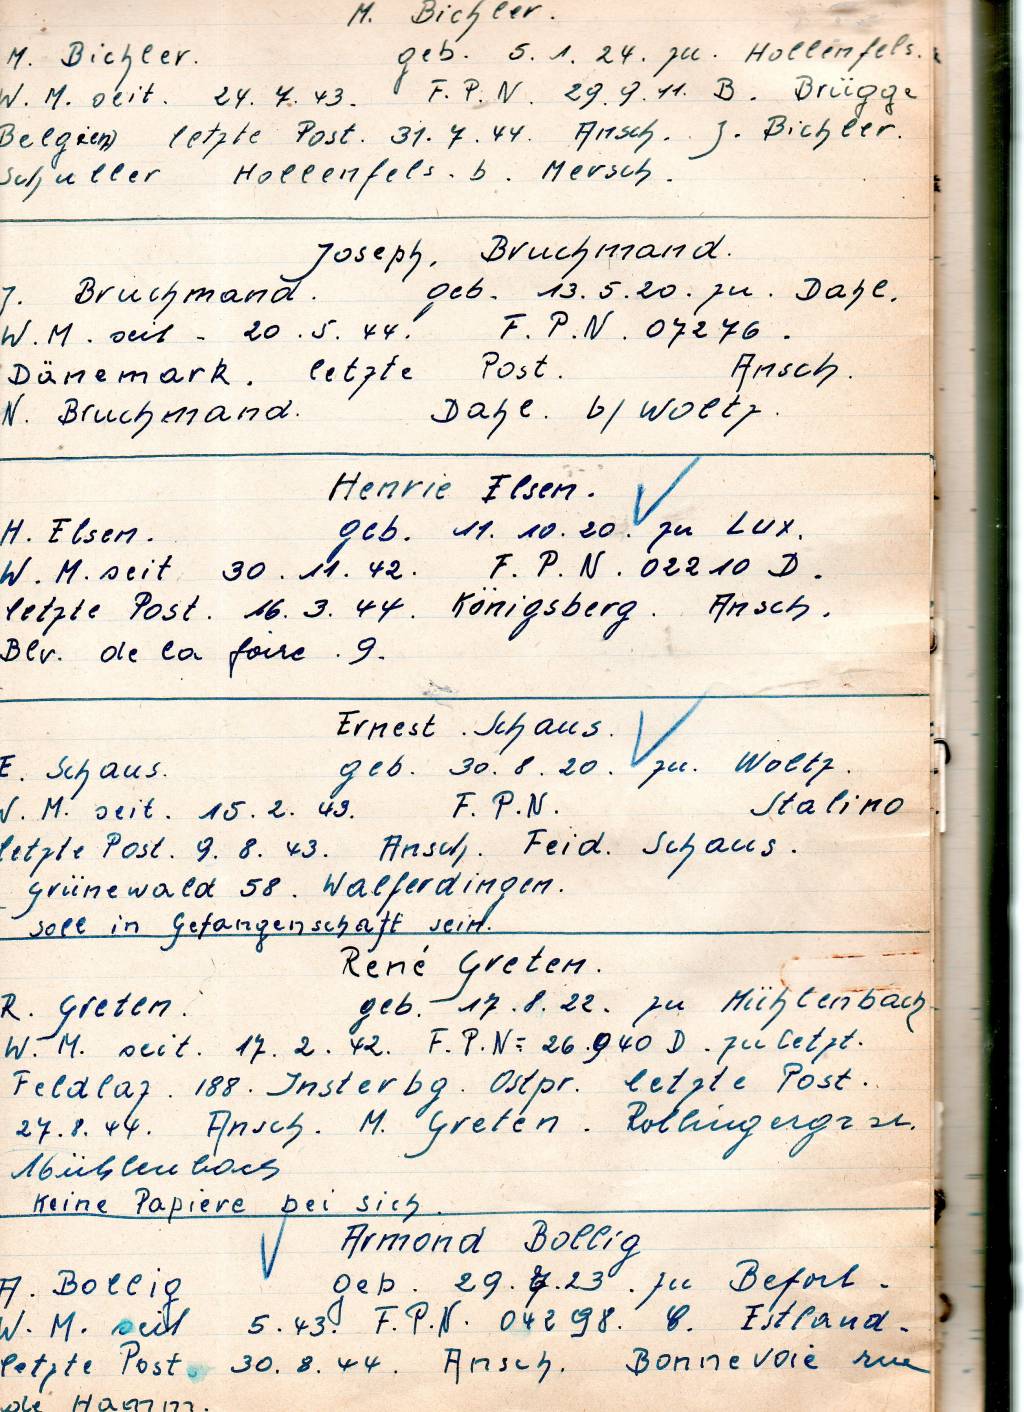 M. Bichler.
M. Bichler. geb. 5. 1. 24. zu. Hollenfels.
W. M. seit. 24. 7. 43. F. P. N. 29.9.11. B. Brügge
Belgien) letzte Post. 31. 7. 44. Ansch. J. Bichler.
Schuller Hollenfels. b. Mersch.
Joseph. Bruchmand.
J. Bruchmand. geb. 13. 5. 20. zu. Dahl.
W. M. seit - 20. 5. 44. F. P. N. 07276.
Dänemark. letzte Post. Ansch.
N. Bruchmand. Dahl. b/ Woltz.
Henrie Elsen.
H. Elsen. geb. 11. 10. 20. zu Lux.
W. M. seit 30. 11. 42. F. P. N. 02210 D.
letzte Post. 16. 3. 44. Königsberg. Ansch.
Blv. de la foire. 9.
Ernest. Schaus.
E. Schaus. geb. 30. 8. 20. zu. Woltz.
W. M. seit. 15. 2. 43. F. P. N. Stalino
letzte Post. 9. 8. 43. Ansch. Feid. Schaus.
Grünewald 58. Walferdingen.
soll in Gefangenschaft sein.
René Greten.
R. Greten. geb. 17. 8. 22. zu Mühlenbach
W. M. seit. 17. 2. 42. F. P. N= 26.940 D. zuletzt.
Feldlaz. 188. Insterbg. Ostpr. letzte Post.
27. 8. 44. Ansch. M. Greten. Rollingergr st.
Mühlenbach
Keine Papiere bei sich.
Armond Bollig
A. Bollig geb. 29. 7. 23. zu Befort.
W. M. seit 5. 43. F. P. N. 04298. C. Estland.
letzte Post. 30. 8. 44. Ansch. Bonnevoie rue
de Hamm.